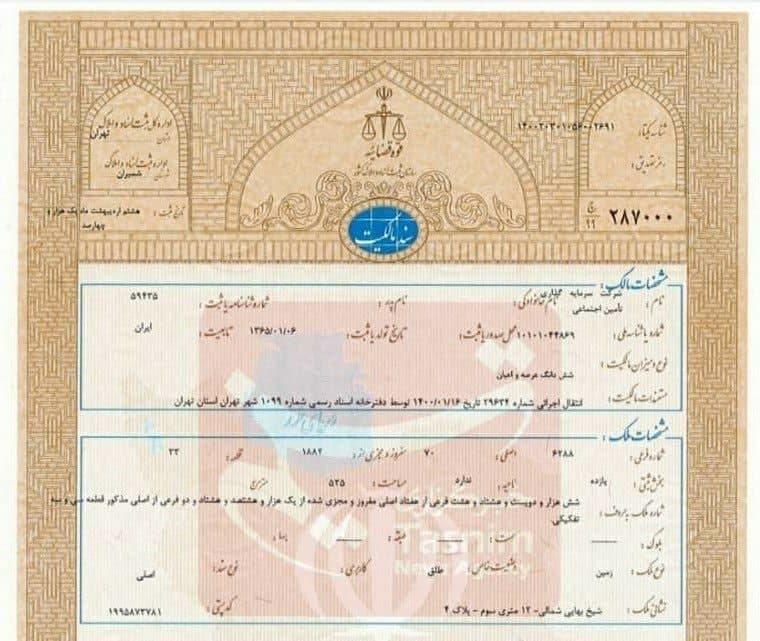 اداره کل ثبت اسناد و املاک
استان تهران
اداره ثبت اسناد و املاک
شمیران
تاریخ ثبت : هشتم اردیبهشت ماه یک هزار و چهارصد
قوه قضائیه
سازمان ثبت اسناد و املاک کشور
سند مالکیت
شناسه یکتا : ۱۴۰۰۲۰۳۰۱۰۵۶۰۰۲۶۹۱
رمز تصدیق :
۲۸۷۰۰۰ ج ۹۹
مشخصات مالک :
نام : شرکت سرمایه گذاری تأمین اجتماعی نام خانوادگی : نام پدر : شماره شناسنامه یا ثبت : ۵۹۴۳۵
شماره یا شناسه ملی : ۱۰۱۰۱۰۴۴۸۶۹ محل صدور یا ثبت : تاریخ تولد یا ثبت : ۱۳۶۵/۰۱/۰۶ تابعیت : ایران
نوع و میزان مالکیت :
شش دانگ عرصه و اعیان
مستندات مالکیت : انتقال اجرائی شماره ۲۹۶۳۴ تاریخ ۱۴۰۰/۰۱/۱۶ توسط دفترخانه اسناد رسمی شماره ۱۰۹۹ شهر تهران استان تهران
مشخصات ملک :
شماره فرعی : ۶۲۸۸ اصلی : ۷۰ مفروز و مجزی از : ۱۸۸۲ قطعه : ۳۳
بخش ثبتی : یازده ناحیه : ندارد مساحت : ۵۲۵ متر مربع
شماره ملک به حروف : شش هزار و دویست و هشتاد و هشت فرعی از هفتاد اصلی مفروز و مجزی شده از یک هزار و هشتصد و هشتاد و دو فرعی از اصلی مذکور قطعه سی و سه تفکیکی
بلوک : سمت : طبقه :
نوع ملک : زمین وضعیت خاص : طلق کاربری : نوع سند : اصلی
نشانی ملک : شیخ بهایی شمالی- ۱۲ متری سوم - پلاک ۴ کد پستی : ۱۹۹۵۸۷۳۷۸۱
خبرگزاری تسنیم
Tasnim
News Agency